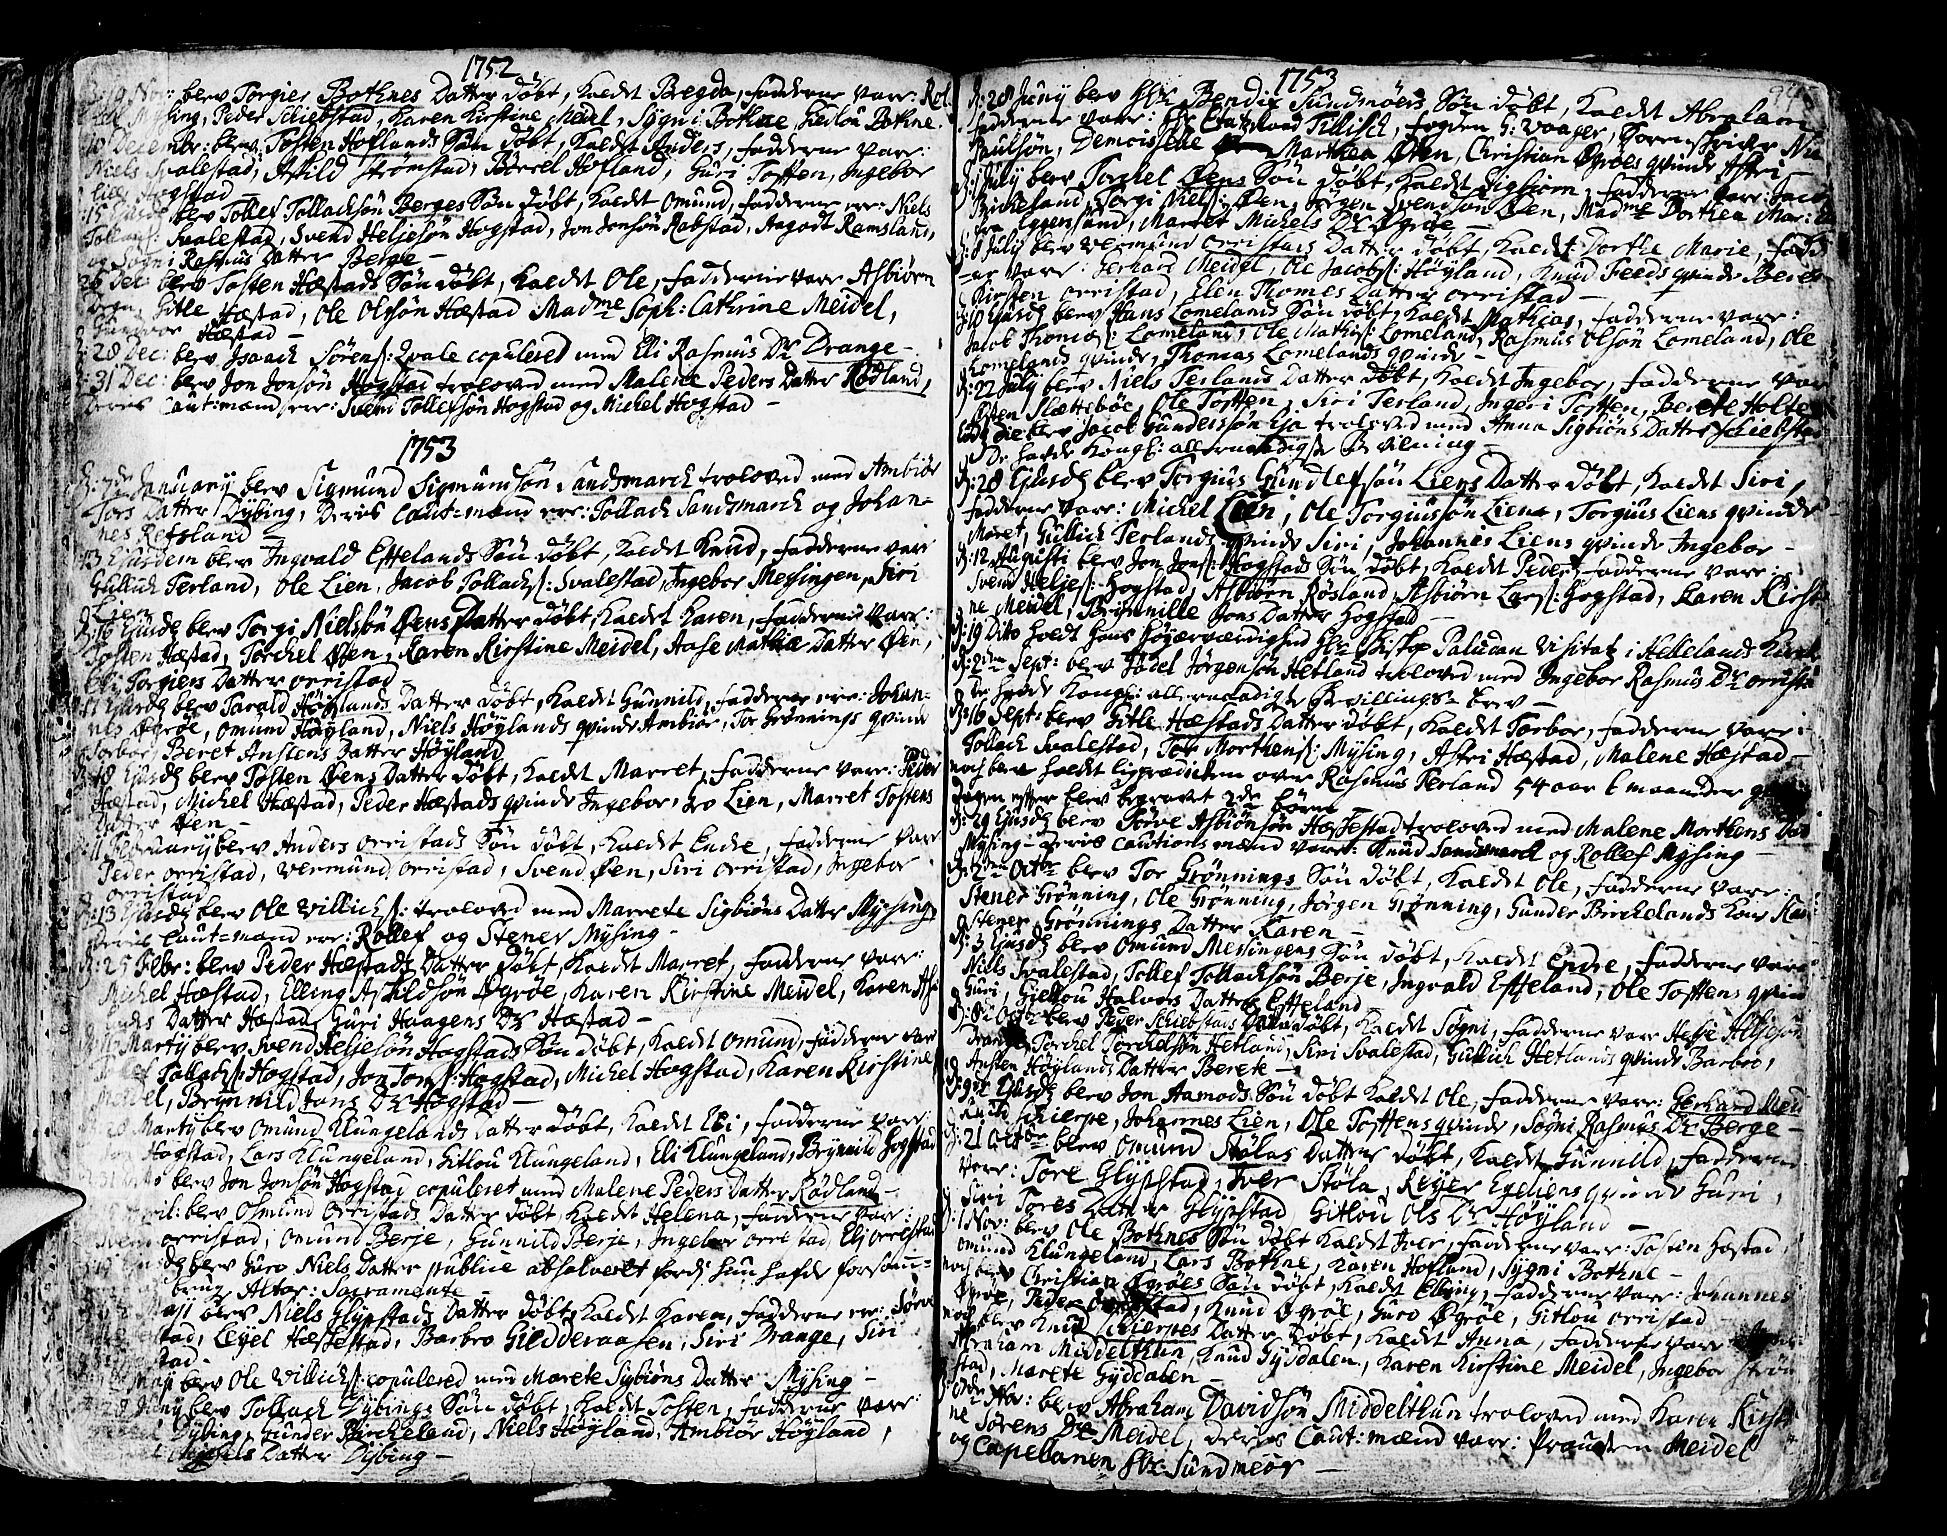 1752
Nov: blev Torgier Bothnes Datter döbt, kaldt Bregda, fadderne vare: Rol-
Mysing, Peder Schiebstad, Karen Kirstine Meidel, Sygni Bothne, Giedlou Bothne.
10 Decembr: blev Tosten Hoflands Sön döbt, kaldt Anders, fadderne vare:
Niels Svalestad, Askild Strömstad, Börrel Hofland, Guri Tosten, Ingebor
Hogstad —
15 blev Tollef Tollachsön Berges Sön döbt, kaldt Omund, fadderne ere: Niels
Svalestad, Svend Heljesön Hogstad, Jon Jonsön Rabstad, Aagodt Ramsland,
og Sygni Rasmus Datter Berge —
26 Dec: blev Tosten Hæstads Sön döbt, kaldt Ole, fadderne vare Asbiörn
Gitle Hæstad, Ole Olssön Hæstad Madme Soph: Cathrine Meidel,
Hæstad —
28 Dec: blev Isaach Sörens: Qvale copuleret med Eli Rasmus Dr Drange —
31 Dec: blev Jon Jonsön Hogstad troloved med Malene Peders Datter Rödland,
Deres Caut:mænd ere: Svend Tollefsön Hogstad og Michel Hogstad —
1753
January blev Sigmund Sigmundsön Sandsmarck troloved med Ambiör
Tors Datter Dybing, Deris Caut=mænd ere: Tollach Sandsmarck og Johan-
nes Refsland —
13 Ejusdem blev Ingvald Eftelands Sön döbt, kaldt Knud, fadderne vare
Gullich Terland, Ole Lien, Jacob Tollachs: Svalestad, Ingebor Messingen, Siri
Lien
D: 16 Ejusd blev Torgi Nielssön Öens Datter döbt, kaldt Karen, fadderne vare:
Tosten Hæstad, Torchel Öen, Karen Kirstine Meidel, Aase Mathiæ Datter Öen,
Eli Torgiers Datter orristad —
Ejusd blev Tarald Höylands Datter döbt, kaldt Gunnild, fadderne ere: Johan-
nes Ögröe, Omund Höyland, Niels Höylands qvinde Ambiör, Tor Grönnings qvinde
Torbor, Beret Anstens Datter Höyland
Ejusd blev Tosten Öens Datter döbt, kaldt Marret, fadderne vare: Peder
Hæstad, Michel Hæstad, Peder Hæstads qvinde Ingebor, Lien, Marret Tostens
Datter Öen —
11 February blev Anders orristads Sön döbt, kaldt Endre, fadderne vare
Peder orristad, Vermund orristad, Svend Öen, Siri orristad, Ingebor
orristad
13 Ejusd blev Ole Villichs: troloved med Marrete Sigbiöns Datter Mysing
Deris Caut=mænd ere: Rollef og Stener Mysing —
25 Febr: blev Peder Hæstads Datter döbt, kaldt Marret, fadderne vare:
Michel Hæstad, Elling Askildsön Ögröe, Karen Kirstine Meidel, Karen
Datter Hæstad, Guri Haagens Dr Hæstad —
Marty blev Svend Heljesön Hogstads Sön döbt, kaldt Omund, fadderne vare
Tollachs: Hogstad, Jon Jons: Hogstad, Michel Hogstad, Karen Kirstine
Meidel, Brynnild Jons Dr Hogstad —
20 Marty blev Omund Klungelands Datter döbt, kaldt Eli, fadderne vare:
Hogstad, Lars Klungeland, Gitlou Klungeland, Eli Klungeland, Brynnild Hogstad
blev Jon Jonsön Hogstad copuleret med Malene Peders Datter Rödland —
April: blev Osmund Orristads Datter döbt, kaldt Helena, fadderne vare:
Svend orristad, Omund Berje, Gunnild Berje, Ingebor orristad Eli orristad
blev Guro Niels Datter publice absolveret fordi hun hafde forsöm-
bruge Altar: Sacramente
Maji blev Niels Glypstads Datter döbt, kaldt Karen, fadderne ere: Törve
Leyel Hæssestad, Barbro Gieddraasen, Siri Drange, Siri
stad —
Maji blev Ole Villichs: copuleret med Marete Sybiöns Datter Mysing —
Juny blev Tollach Dybings Sön döbt, kaldt Tosten, fadderne vare:
Dybing, Gunder Birckeland, Niels Höyland, Ambiör Höyland,
Michels Datter Dybing —
1753
D: 28 Juny blev Hr Bendix Sundmöers Sön döbt, kaldt Abraham
fadderne vare: Hr Etatz Raad Tillisch, fogden G: Vaager, Sorenskriver Nie
Paulsön, Demoiselle Marthea Öten, Christian Ögröes qvinde Astri —
D: 1 July blev Torchel Öens Sön döbt, kaldt Sigbiörn, fadderne vare: Jacob
Birckeland, Torgi Niels: Öen, Jörgen Svendsön Öen, Madme Dorthea Mar:
fra Eggersund, Marret Michels Dr Ögröe —
D: 8 July blev Vermund Orristads Datter döbt, kaldt Dorthe Marie, fadd-
=er vare: Gerhard Meidel, Ole Jacobs: Höyland, Knud Feeds qvinde Beret
Kirsten orristad, Elen Thomes Datter orristad —
D: 10 Ejusd blev Hans Lomelands Sön döbt, kaldt Mathias, fadderne vare:
Jacob Thomæs: Lomeland, Ole Mathis: Lomeland, Rasmus Olsön Lomeland, Ole
Lomelands qvinde, Thomas Lomelands qvinde —
D: 22 July blev Niels Terlands Datter döbt, kaldt Ingebor, fadderne vare
Östen Slætteböe, Ole Tostten, Siri Terland, Ingeri Tostten, Berete Holte
Eod: die blev Jacob Gunderssön Eja troloved med Anna Sigbiöns Datter Schiebstad
De havde Kongl: allernaadigst Bevilning —
D: 28 Ejusd blev Torgius Gundlefsön Liens Datter döbt, kaldt Siri,
fadderne vare: Michel Lien, Ole Torgiussön Lien, Torgius Liens qvinde
Maret, Gullich Terlands qvinde Siri, Johannes Liens qvinde Ingebor —
D: 12 Augusti blev Jon Jons: Hogstads Sön döbt, kaldt Peder, fadderne vare:
Svend Heljes: Hogstad, Asbiörn Rösland, Asbiörn Lars: Hogstad, Karen Kirsti-
ne Meidel, Brynnille Jons Datter Hogstad —
D: 19 Dito holdt Hans Höyærværdighed Hr Biskop Paludan Visitatz i Hellelands Kirke
D: 2den Sept: blev Jadel Jörgensön Hetland troloved med Ingebor Rasmus Dr orrista
De hafde Kongl: allernaadigste Bevillings-brev —
D: 16 Sept: blev Gitle Hæstads Datter döbt, kaldt Torbor, fadderne vare:
Tollach Svalestad, Tor Morthens: Mysing, Astri Hæstad, Malene Hæstad —
noch blev holdt ligprædicken over Rasmus Terland 54 aar 6 maaneder g
dagen efter blev begravet 2de börn
D: 29 Ejusd blev Törve Asbiönsön Hæssestad troloved med Malene Morthens Dat
Mysing — Deris Cautions mænd vare: Knud Sandsmarck og Rollef Mysing —
D: 2den Octbr blev Tor Grönnings Sön döbt, kaldt Ole, fadderne vare:
Stener Grönning, Ole Grönning, Jörgen Grönning, Gunder Birckelands Kone
Stener Grönnings Datter Karen —
D: 3 Ejusd blev Omund Messingens Sön döbt, kaldt Endre, fadderne vare
Niels Svalestad, Tollef Tollachsön Berje, Ingvald Efteland, Ole Tosttens qvin
Guri, Giellou Halvors Datter Efteland
D: 8 Octbr blev Peder Schiebstads Datter döbt, kaldt Sögni, fadderne vare Helje Heljesön
Drange, Torchel Torchelsön Hetland, Siri Svalestad, Gullich Hetlands qvinde Barbro,
Ansten Höylands Datter Berete —
Ejusd blev Jon Aamods Sön döbt kaldt Ole, fadderne vare: Gerhard Mei
Knud Schierpe, Johannes Lien, Ole Tosttens qvinde, Sögni Rasmus Dr Berge —
D: 21 Octbr blev Omund Stölas Datter döbt, kaldt Gunnild, fadderne
vare: Tore Glypstad, Iver Stöla, Reyer Egeliens qvinde Guri,
Siri Tores Datter Glypstad, Gitlou Ols Dr Höyland —
D: 1 Nov: blev Ole Bothnes Sön döbt kaldt Iver, fadderne vare: Tosten Hostad,
Omund Klungeland, Lars Bothne, Karen Hofland, Sygni Bothne —
noch blev Christian Ögröes Sön döbt, kaldt Elling, fadderne vare: Johannes
Ögröe, Peder orristad, Knud Ögröe, Guro Ögröe, Gitlou orristad
noch blev Knud Schierpes Datter döbt, kaldt Anna, fadderne vare
Abraham Middelthun, Knud Gyddalen, Karen Kirstine Meidel, Ingebor Ström
stad, Marete Gyddalen —
Nov: blev Abraham Davidsön Middelthun troloved med Karen Kirsti-
ne Sörens Dr Meidel, deres Caut:mænd vare: Prousten Meidel
og Capellanen Hr Sundmeör —